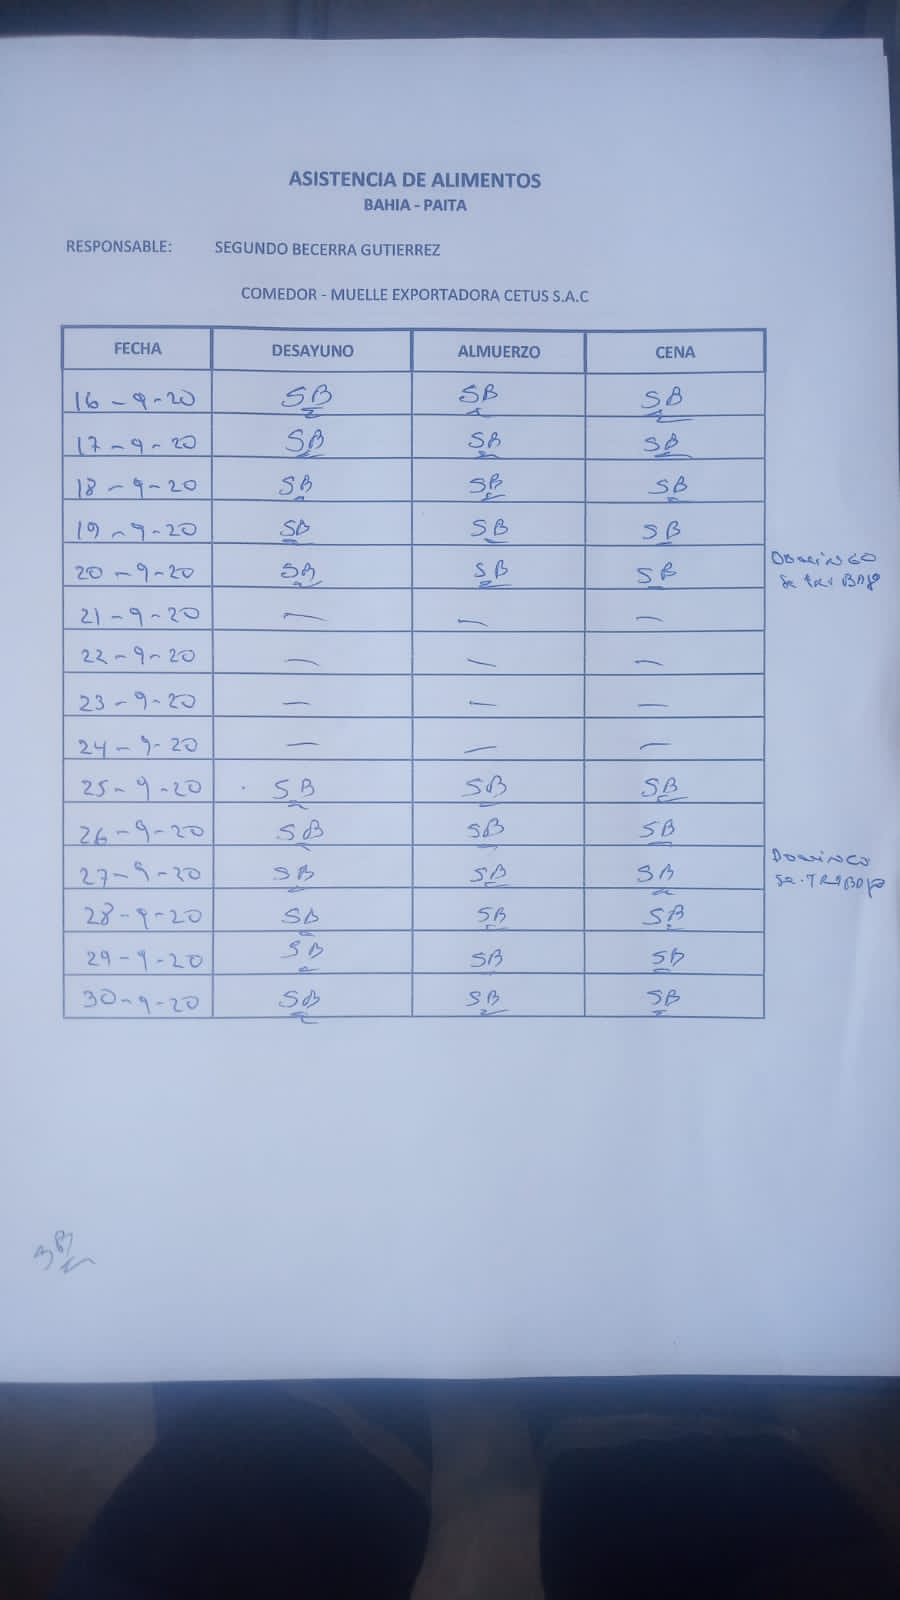 ASISTENCIA DE ALIMENTOS
BAHIA - PAITA
RESPONSABLE: SEGUNDO BECERRA GUTIERREZ
COMEDOR - MUELLE EXPORTADORA CETUS S.A.C
FECHA DESAYUNO ALMUERZO CENA
16-9-20 SB SB SB
17-9-20 SB SB SB
18-9-20 SB SB SB
19-9-20 SB SB SB
20-9-20 SB SB SB DOMINGO
Se trabajo
21-9-20 — — —
22-9-20 — — —
23-9-20 — — —
24-9-20 — — —
25-9-20 SB SB SB
26-9-20 SB SB SB
27-9-20 SB SB SB DOMINGO
Se TRABAJO
28-9-20 SB SB SB
29-9-20 SB SB SB
30-9-20 SB SB SB
SB